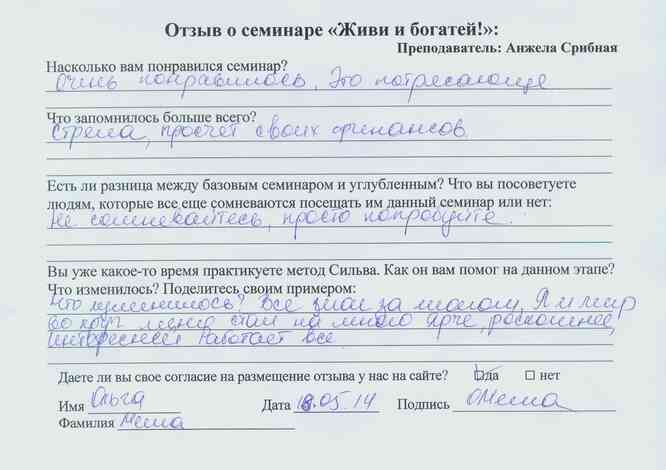 Отзыв о семинаре «Живи и богатей!»:
Преподаватель: Анжела Срибная
Насколько вам понравился семинар?
Очень понравилось, Это потресающе
Что запомнилось больше всего?
Стрела, просчет своих финансов.
Есть ли разница между базовым семинаром и углубленным? Что вы посоветуете
людям, которые все еще сомневаются посещать им данный семинар или нет:
Не сомневайтесь, просто попробуйте.
Вы уже какое-то время практикуете метод Сильва. Как он вам помог на данном этапе?
Что изменилось? Поделитесь своим примером:
Что изменилось? Все за Я и мир
во круг меня стал на много ярче, роскошнее,
интереснее Работает все
Даете ли вы свое согласие на размещение отзыва у нас на сайте? да нет
Имя Ольга Дата 18.05.14 Подпись
Фамилия